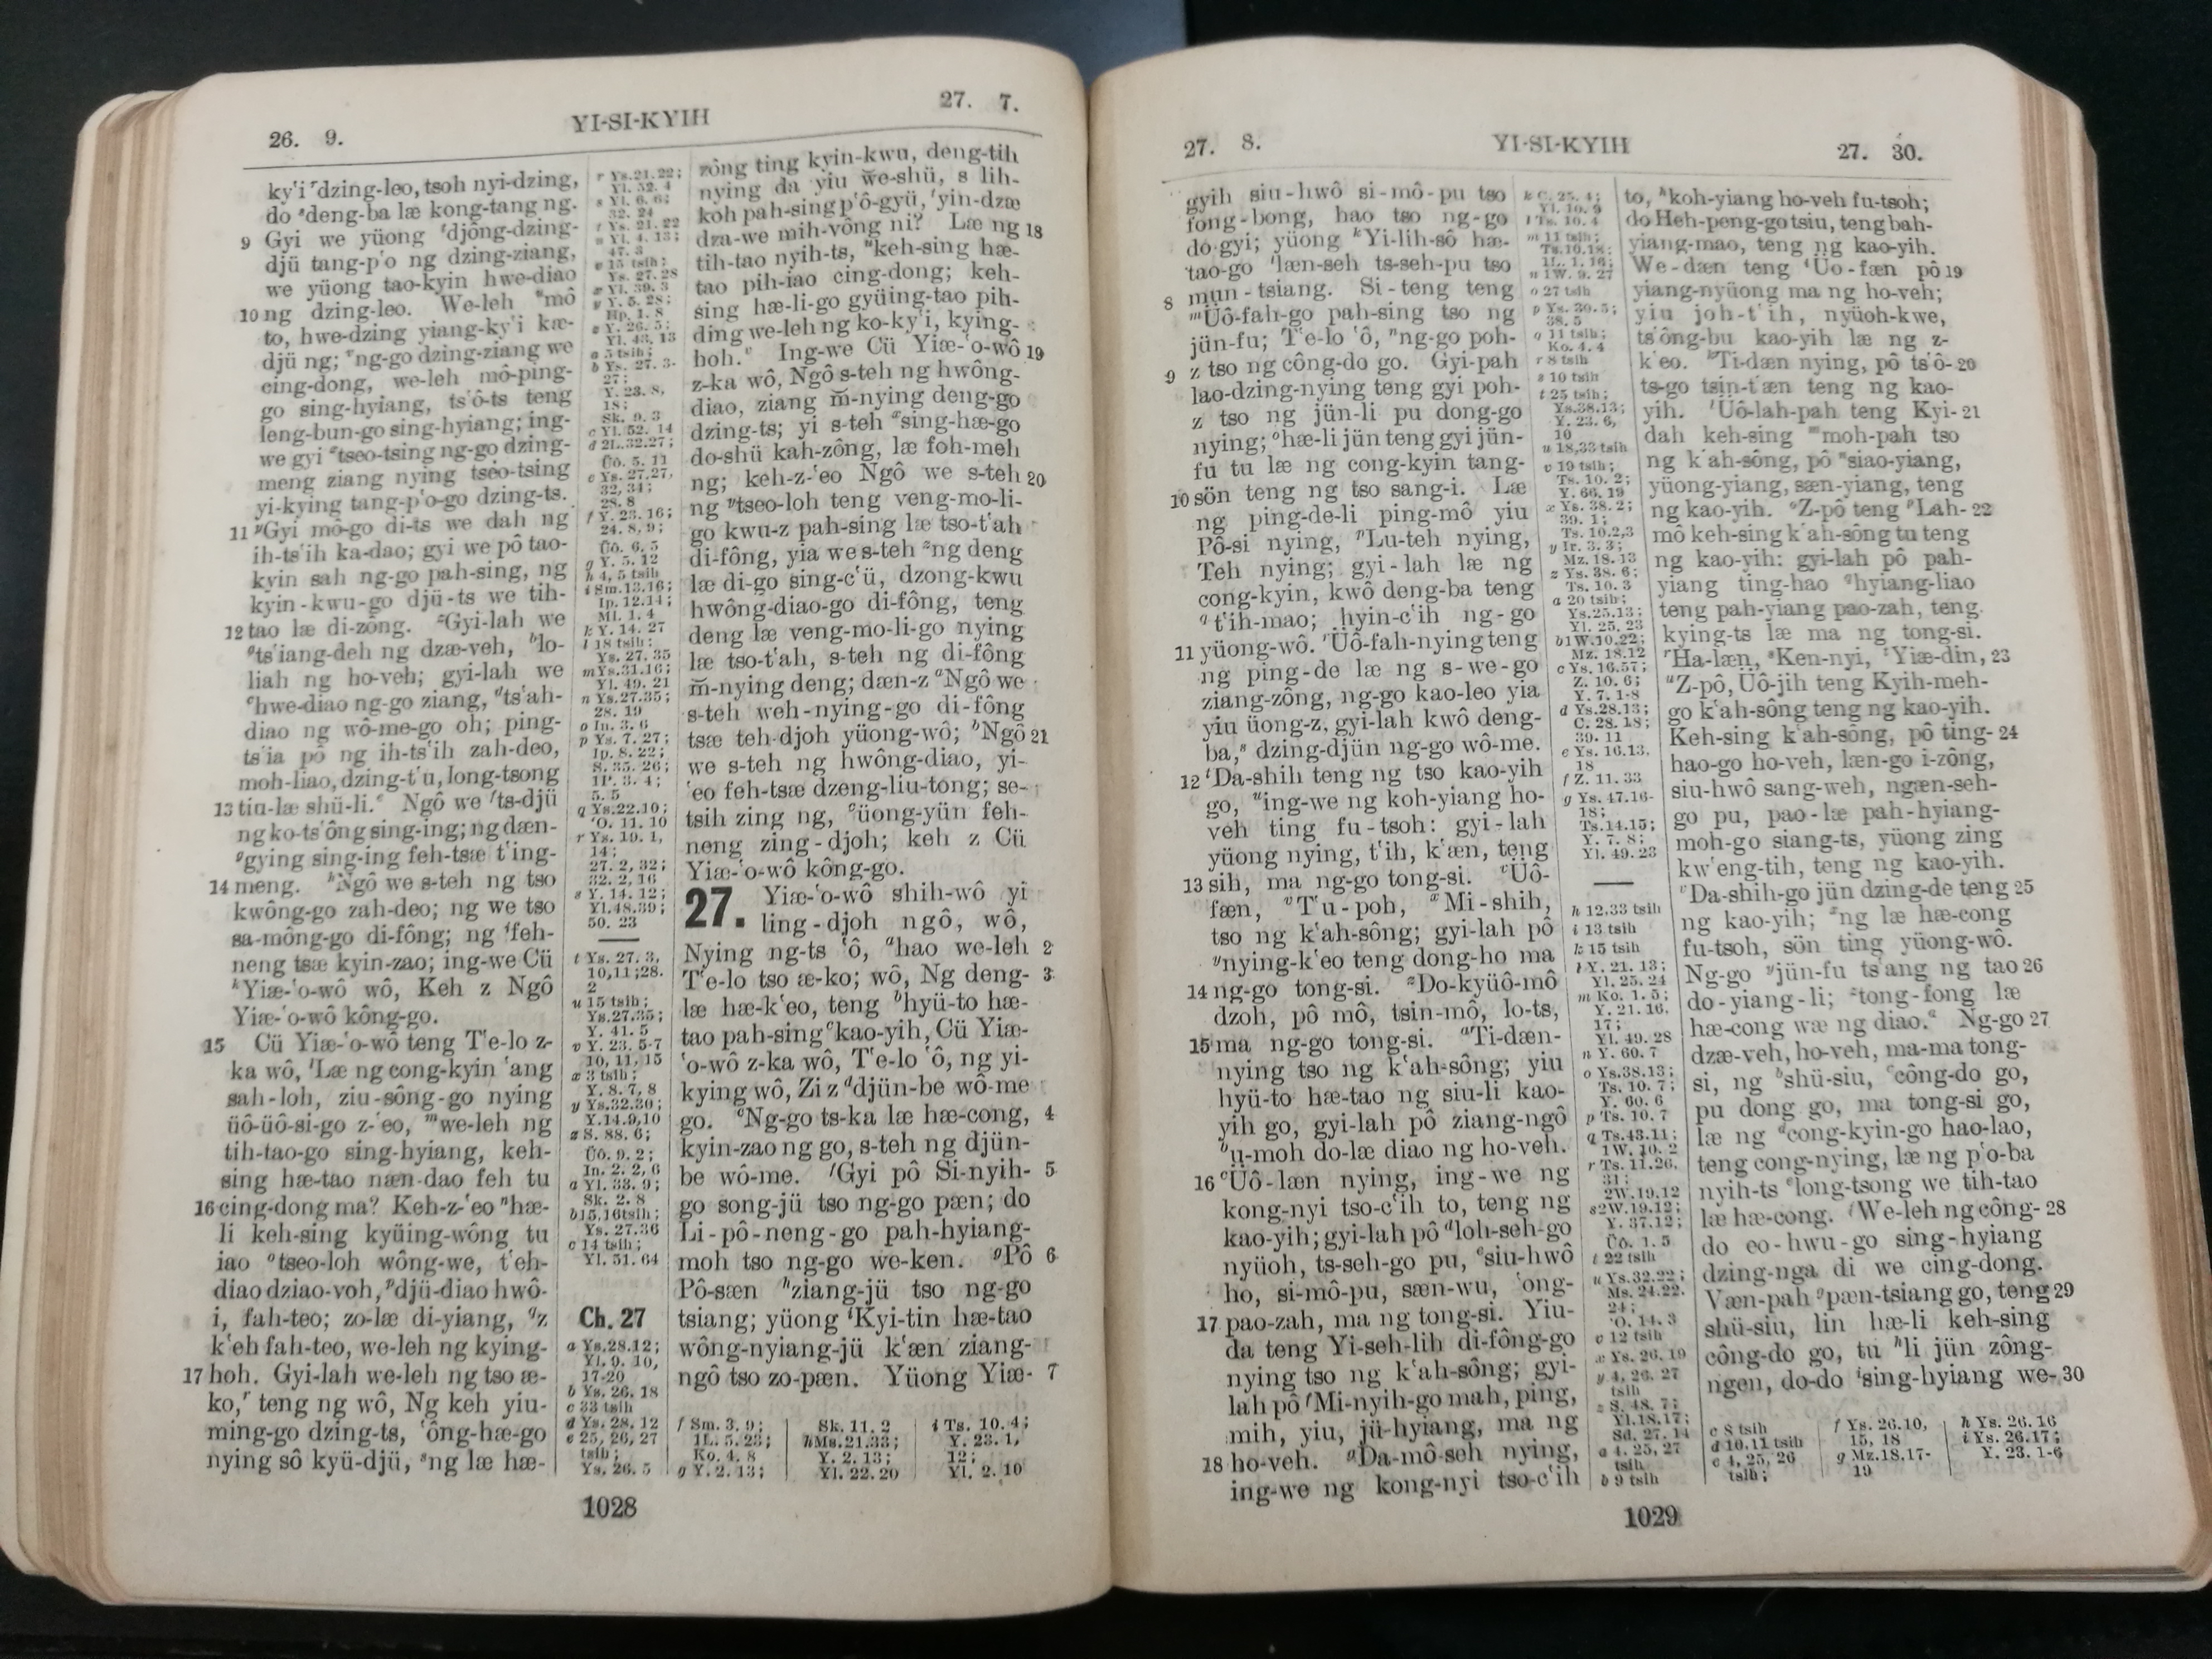 26. 9.
YI-SI-KYIH
27. 7.
ky'i ʳdzing-leo, tsoh nyi-dzing,
do ˢdeng-ba læ kong-tang ng.
9 Gyi we yüong ᵗdjông-dzing-
djü tang-p'o ng dzing-ziang,
we yüong tao-kyin hwe-diao
10 ng dzing-leo. We-leh ᵘmô
to, hwe-dzing yiang-ky'i kæ-
djü ng; ᵛng-go dzing-ziang we
cing-dong, we-leh mô-ping-
go sing-hyiang, ts'ô-ts teng
leng-bun-go sing-hyiang; ing-
we gyi ˣtseo-tsing ng-go dzing-
meng ziang nying tseo-tsing
yi-kying tang-p'o-go dzing-ts.
11 ʸGyi mô-go di-ts we dah ng
ih-ts'ih ka-dao; gyi we pô tao-
kyin sah ng-go pah-sing, ng
kyin-kwu-go djü-ts we tih-
12 tao læ di-zông. ᶻGyi-lah we
ᵃts'iang-deh ng dzæ-veh, ᵇlo-
liah ng ho-veh; gyi-lah we
ᶜhwe-diao ng-go ziang, ᵈts'ah-
diao ng wô-me-go oh; ping-
ts'ia pô ng ih-ts'ih zah-deo,
moh-liao, dzing-t'u, long-tsong
13 tiu-læ shü-li.ᵉ Ngô we ᶠts-djü
ng ko-ts'ông sing-ing; ng dæn-
ᵍgying sing-ing feh-tsæ t'ing-
14 meng. ʰNgô we s-teh ng tso
kwông-go zah-deo; ng we tso
sa-mông-go di-fông; ng ⁱfeh-
neng tsæ kyin-zao; ing-we Cü
ᵏYiæ-'o-wô wô, Keh z Ngô
Yiæ-'o-wô kông-go.
15 Cü Yiæ-'o-wô teng T'e-lo z-
ka wô, ˡLæ ng cong-kyin 'ang
sah-loh, ziu-sông-go nying
üô-üô-si-go z-'eo, ᵐwe-leh ng
tih-tao-go sing-hyiang, keh-
sing hæ-tao næn-dao feh tu
16 cing-dong ma? Keh-z-'eo ⁿhæ-
li keh-sing kyüing-wông tu
iao ᵒtseo-loh wông-we, t'eh-
diao dziao-voh, ᵖdjü-diao hwô-
i, fah-teo; zo-læ di-yiang, ᑫz
k'eh fah-teo, we-leh ng kying-
17 hoh. Gyi-lah we-leh ng tso æ-
ko,ʳ teng ng wô, Ng keh yiu-
ming-go dzing-ts, 'ông-hæ-go
nying sô kyü-djü, ˢng læ hæ-
r Ys.21.22;
Yl. 52. 4
s Yl. 6. 6;
32. 24
t Ys. 21. 22
u Yl. 4. 13;
47. 3
v 15 tsih;
Ys. 27.28
x Yl. 39. 3
y Y. 5. 28;
Hp. 1. 8
z Y. 26. 5;
Yl. 43, 13
a 5 tsih;
b Ys. 27. 3-
27;
Y. 23. 8,
18;
Sk. 9. 3
c Yl. 52. 14
d 2L.32.27;
Üô. 5. 11
e Ys. 27.27,
32, 34;
28. 8
f Y. 23.16;
24. 8, 9;
Üô. 6. 5
g Y. 5. 12
h 4, 5 tsih
i Sm.13.16;
Ip. 12.14;
Ml. 1. 4
k Y. 14. 27
l 18 tsih;
Ys. 27. 35
m Ys.31.16;
Yl. 49. 21
n Ys.27.35;
28. 19
o In. 3. 6
p Ys. 7. 27;
Ip. 8. 22;
S. 35. 26;
1P. 3. 4;
5. 5
q Ys.22.10;
'O. 11. 10
r Ys. 19. 1,
14;
27. 2, 32;
32. 2, 16
s Y. 14. 12;
Yl.48.39;
50. 23
t Ys. 27. 3,
10,11;28.
2
u 15 tsih;
Ys.27.35;
Y. 41. 5
v Y. 23. 5-7
10, 11, 15
x 3 tsih;
Y. 8. 7, 8
y Ys.32.30;
Y.14.9,10
z S. 88. 6;
Üô. 9. 2;
In. 2. 2, 6
a Yl. 33. 9;
Sk. 2. 8
b 15,16tsih;
Ys. 27.36
c 14 tsih;
Yl. 51. 64
Ch. 27
a Ys.28.12;
Yl. 9. 10,
17-20
b Ys. 26. 18
c 33 tsih
d Ys. 28. 12
e 25, 26, 27
tsih;
Ys. 26. 5
zông ting kyin-kwu, deng-tih
nying da yiu w̆e-shü, s lih-
koh pah-sing p'ô-gyü, ᵗyin-dzæ
dza-we mih-vông ni? Læ ng 18
tih-tao nyih-ts, ᵘkeh-sing hæ-
tao pih-iao cing-dong; keh-
sing hæ-li-go gyüing-tao pih-
ding we-leh ng ko-ky'i, kying-
hoh.ᵛ Ing-we Cü Yiæ-'o-wô 19
z-ka wô, Ngô s-teh ng hwông-
diao, ziang m̆-nying deng-go
dzing-ts; yi s-teh ˣsing-hæ-go
do-shü kah-zông, læ foh-meh
ng; keh-z-'eo Ngô we s-teh 20
ng ʸtseo-loh teng veng-mo-li-
go kwu-z pah-sing læ tso-t'ah
di-fông, yia we s-teh ᶻng deng
læ di-go sing-c'ü, dzong-kwu
hwông-diao-go di-fông, teng
deng læ veng-mo-li-go nying
læ tso-t'ah, s-teh ng di-fông
m̆-nying deng; dæn-z ᵃNgô we
s-teh weh-nying-go di-fông
tsæ teh-djoh yüong-wô; ᵇNgô 21
we s-teh ng hwông-diao, yi-
'eo feh-tsæ dzeng-liu-tong; se-
tsih zing ng, ᶜüong-yün feh-
neng zing-djoh; keh z Cü
Yiæ-'o-wô kông-go.
27. Yiæ-'o-wô shih-wô yi
ling-djoh ngô, wô,
Nying ng-ts 'ô, ᵃhao we-leh 2
T'e-lo tso æ-ko; wô, Ng deng- 3
læ hæ-k'eo, teng ᵇhyü-to hæ-
tao pah-sing ᶜkao-yih, Cü Yiæ-
'o-wô z-ka wô, T'e-lo 'ô, ng yi-
kying wô, Zi z ᵈdjün-be wô-me
go. ᵉNg-go ts-ka læ hæ-cong, 4
kyin-zao ng go, s-teh ng djün-
be wô-me. ᶠGyi pô Si-nyih- 5
go song-jü tso ng-go pæn; do
Li-pô-neng-go pah-hyiang-
moh tso ng-go we-ken. ᵍPô 6
Pô-sæn ʰziang-jü tso ng-go
tsiang; yüong ⁱKyi-tin hæ-tao
wông-nyiang-jü k'æn ziang-
ngô tso zo-pæn. Yüong Yiæ- 7
f Sm. 3. 9;
1L. 5. 23;
Ko. 4. 8
g Y. 2. 13;
Sk. 11. 2
h Ms.21.33;
Y. 2. 13;
Yl. 22. 20
i Ts. 10. 4;
Y. 23. 1,
12;
Yl. 2. 10
1028
27. 8.
YI-SI-KYIH
27. 30.
gyih siu-hwô si-mô-pu tso
fong-bong, hao tso ng-go
do-gyi; yüong ᵏYi-lih-sô hæ-
tao-go ˡlæn-seh ts-seh-pu tso
8 mun-tsiang. Si-teng teng
ᵐÜô-fah-go pah-sing tso ng
jün-fu; T'e-lo 'ô, ⁿng-go poh-
9 z tso ng công-do go. Gyi-pah
lao-dzing-nying teng gyi poh-
z tso ng jün-li pu dong-go
nying; ᵒhæ-li jün teng gyi jün-
fu tu læ ng cong-kyin tang-
10 sön teng ng tso sang-i. Læ
ng ping-de-li ping-mô yiu
Pô-si nying, ᵖLu-teh nying,
Teh nying; gyi-lah læ ng
cong-kyin, kwô deng-ba teng
ᑫt'ih-mao; hyin-c'ih ng-go
11 yüong-wô. ʳÜô-fah-nying teng
ng ping-de læ ng s-we-go
ziang-zông, ng-go kao-leo yia
yiu üong-z, gyi-lah kwô deng-
ba,ˢ dzing-djün ng-go wô-me.
12 ᵗDa-shih teng ng tso kao-yih
go, ᵘing-we ng koh-yiang ho-
veh ting fu-tsoh: gyi-lah
yüong nying, t'ih, k'æn, teng
13 sih, ma ng-go tong-si. ᵛÜô-
fæn, ᵛT'u-poh, ˣMi-shih,
tso ng k'ah-sông; gyi-lah pô
ʸnying-k'eo teng dong-ho ma
14 ng-go tong-si. ᶻDo-kyüô-mô
dzoh, pô mô, tsin-mô, lo-ts,
15 ma ng-go tong-si. ᵃTi-dæn-
nying tso ng k'ah-sông; yiu
hyü-to hæ-tao ng siu-li kao-
yih go, gyi-lah pô ziang-ngô
ᵇu-moh do-læ diao ng ho-veh.
16 ᶜÜô-læn nying, ing-we ng
kong-nyi tso-c'ih to, teng ng
kao-yih; gyi-lah pô ᵈloh-seh-go
nyüoh, ts-seh-go pu, ᵉsiu-hwô
ho, si-mô-pu, sæn-wu, 'ong-
17 pao-zah, ma ng tong-si. Yiu-
da teng Yi-seh-lih di-fông-go
nying tso ng k'ah-sông; gyi-
lah pô ᶠMi-nyih-go mah, ping,
mih, yiu, jü-hyiang, ma ng
18 ho-veh. ᵍDa-mô-seh nying,
ing-we ng kong-nyi tso-c'ih
k C. 25. 4;
Yl. 10. 9
l Ts. 10. 4
m 11 tsih;
Ts.10.18;
1L. 1. 16;
n 1W. 9. 27
o 27 tsih
p Ys. 30. 5;
38. 5
q 11 tsih;
Ko. 4. 4
r 8 tsih
s 10 tsih
t 25 tsih;
Ys.38.13;
Y. 23. 6,
10
u 18,33 tsih
v 19 tsih;
Ts. 10. 2;
Y. 66. 19
x Ys. 38. 2;
39. 1;
Ts. 10.2,3
y Ir. 3. 3;
Mz. 18.13
z Ys. 38. 6;
Ts. 10. 3
a 20 tsih;
Ys.25.13;
Yl. 25. 23
b 1W.10.22;
Mz. 18.12
c Ys. 16.57;
Z. 10. 6;
Y. 7. 1-8
d Ys.28.13;
C. 28. 18;
39. 11
e Ys. 16.13,
18
f Z. 11. 33
g Ys. 47.16-
18;
Ts.14.15;
Y. 7. 8;
Yl. 49. 23
h 12,33 tsih
i 13 tsih
k 15 tsih
l Y. 21. 13;
Yl. 25. 24
m Ko. 1. 5;
Y. 21. 16,
17;
Yl. 49. 28
n Y. 60. 7
o Ys.38.13;
Ts. 10. 7;
Y. 60. 6
p Ts. 10. 7
q Ts.43.11;
1W. 10. 2
r Ts. 11.26,
31;
2W.19.12
s 2W.19.12;
Y. 37.12;
Üô. 1. 5
t 22 tsih
u Ys.32.22;
Ms. 24.22.
24;
'O. 14. 3
v 12 tsih
x Ys. 26. 19
y 4, 26, 27
tsih
z S. 48. 7;
Yl.18.17;
Sd. 27. 14
a 4, 25, 27
tsih
b 9 tsih
to, ʰkoh-yiang ho-veh fu-tsoh;
do Heh-peng-go tsiu, teng bah-
yiang-mao, teng ng kao-yih.
We-dæn teng ⁱÜo-fæn pô 19
yiang-nyüong ma ng ho-veh;
yiu joh-t'ih, nyüoh-kwe,
ts'ông-bu kao-yih læ ng z-
k'eo. ᵏTi-dæn nying, pô ts'ô- 20
ts-go tsin-t'æn teng ng kao-
yih. ˡÜô-lah-pah teng Kyi- 21
dah keh-sing ᵐmoh-pah tso
ng k'ah-sông, pô ⁿsiao-yiang,
yüong-yiang, sæn-yiang, teng
ng kao-yih. ᵒZ-pô teng ᵖLah- 22
mô keh-sing k'ah-sông tu teng
ng kao-yih: gyi-lah pô pah-
yiang ting-hao ᑫhyiang-liao
teng pah-yiang pao-zah, teng
kying-ts læ ma ng tong-si.
ʳHa-læn, ˢKen-nyi, ᵗYiæ-din, 23
ᵘZ-pô, Üô-jih teng Kyih-meh-
go k'ah-sông teng ng kao-yih.
Keh-sing k'ah-sông, pô ting- 24
hao-go ho-veh, læn-go i-zông,
siu-hwô sang-weh, ngæn-seh-
go pu, pao-læ pah-hyiang-
moh-go siang-ts, yüong zing
kw'eng-tih, teng ng kao-yih.
ᵛDa-shih-go jün dzing-de teng 25
ng kao-yih; ˣng læ hæ-cong
fu-tsoh, sön ting yüong-wô.
Ng-go ʸjün-fu ts'ang ng tao 26
do-yiang-li; ᶻtong-fong læ
hæ-cong wæ ng diao.ᵃ Ng-go 27
dzæ-veh, ho-veh, ma-ma tong-
si, ng ᵇshü-siu, ᶜcông-do go,
pu dong go, ma tong-si go,
læ ng ᵈcong-kyin-go hao-lao,
teng cong-nying, læ ng p'o-ba
nyih-ts ᵉlong-tsong we tih-tao
læ hæ-cong. ᶠWe-leh ng công- 28
do eo-hwu-go sing-hyiang
dzing-nga di we cing-dong.
Væn-pah ᵍpæn-tsiang go, teng 29
shü-siu, lin hæ-li keh-sing
công-do go, tu ʰli jün zông-
ngen, do-do ⁱsing-hyiang we- 30
c 8 tsih
d 10.11 tsih
e 4, 25, 26
tsih;
f Ys. 26.10,
15, 18
g Mz.18.17-
19
h Ys. 26. 16
i Ys. 26.17;
Y. 23. 1-6
1029